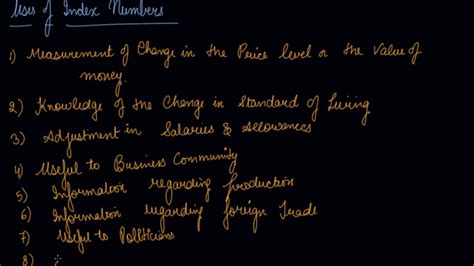 Uses of Index Numbers
1) Measurement of Change in the Price level or the Value of
money.
2) Knowledge of the Change in Standard of Living
3) Adjustment in Salaries & Allowances
4) Useful to Business Community
5) Information regarding Production
6) Information regarding foreign Trade
7) Useful to Politicians
8)